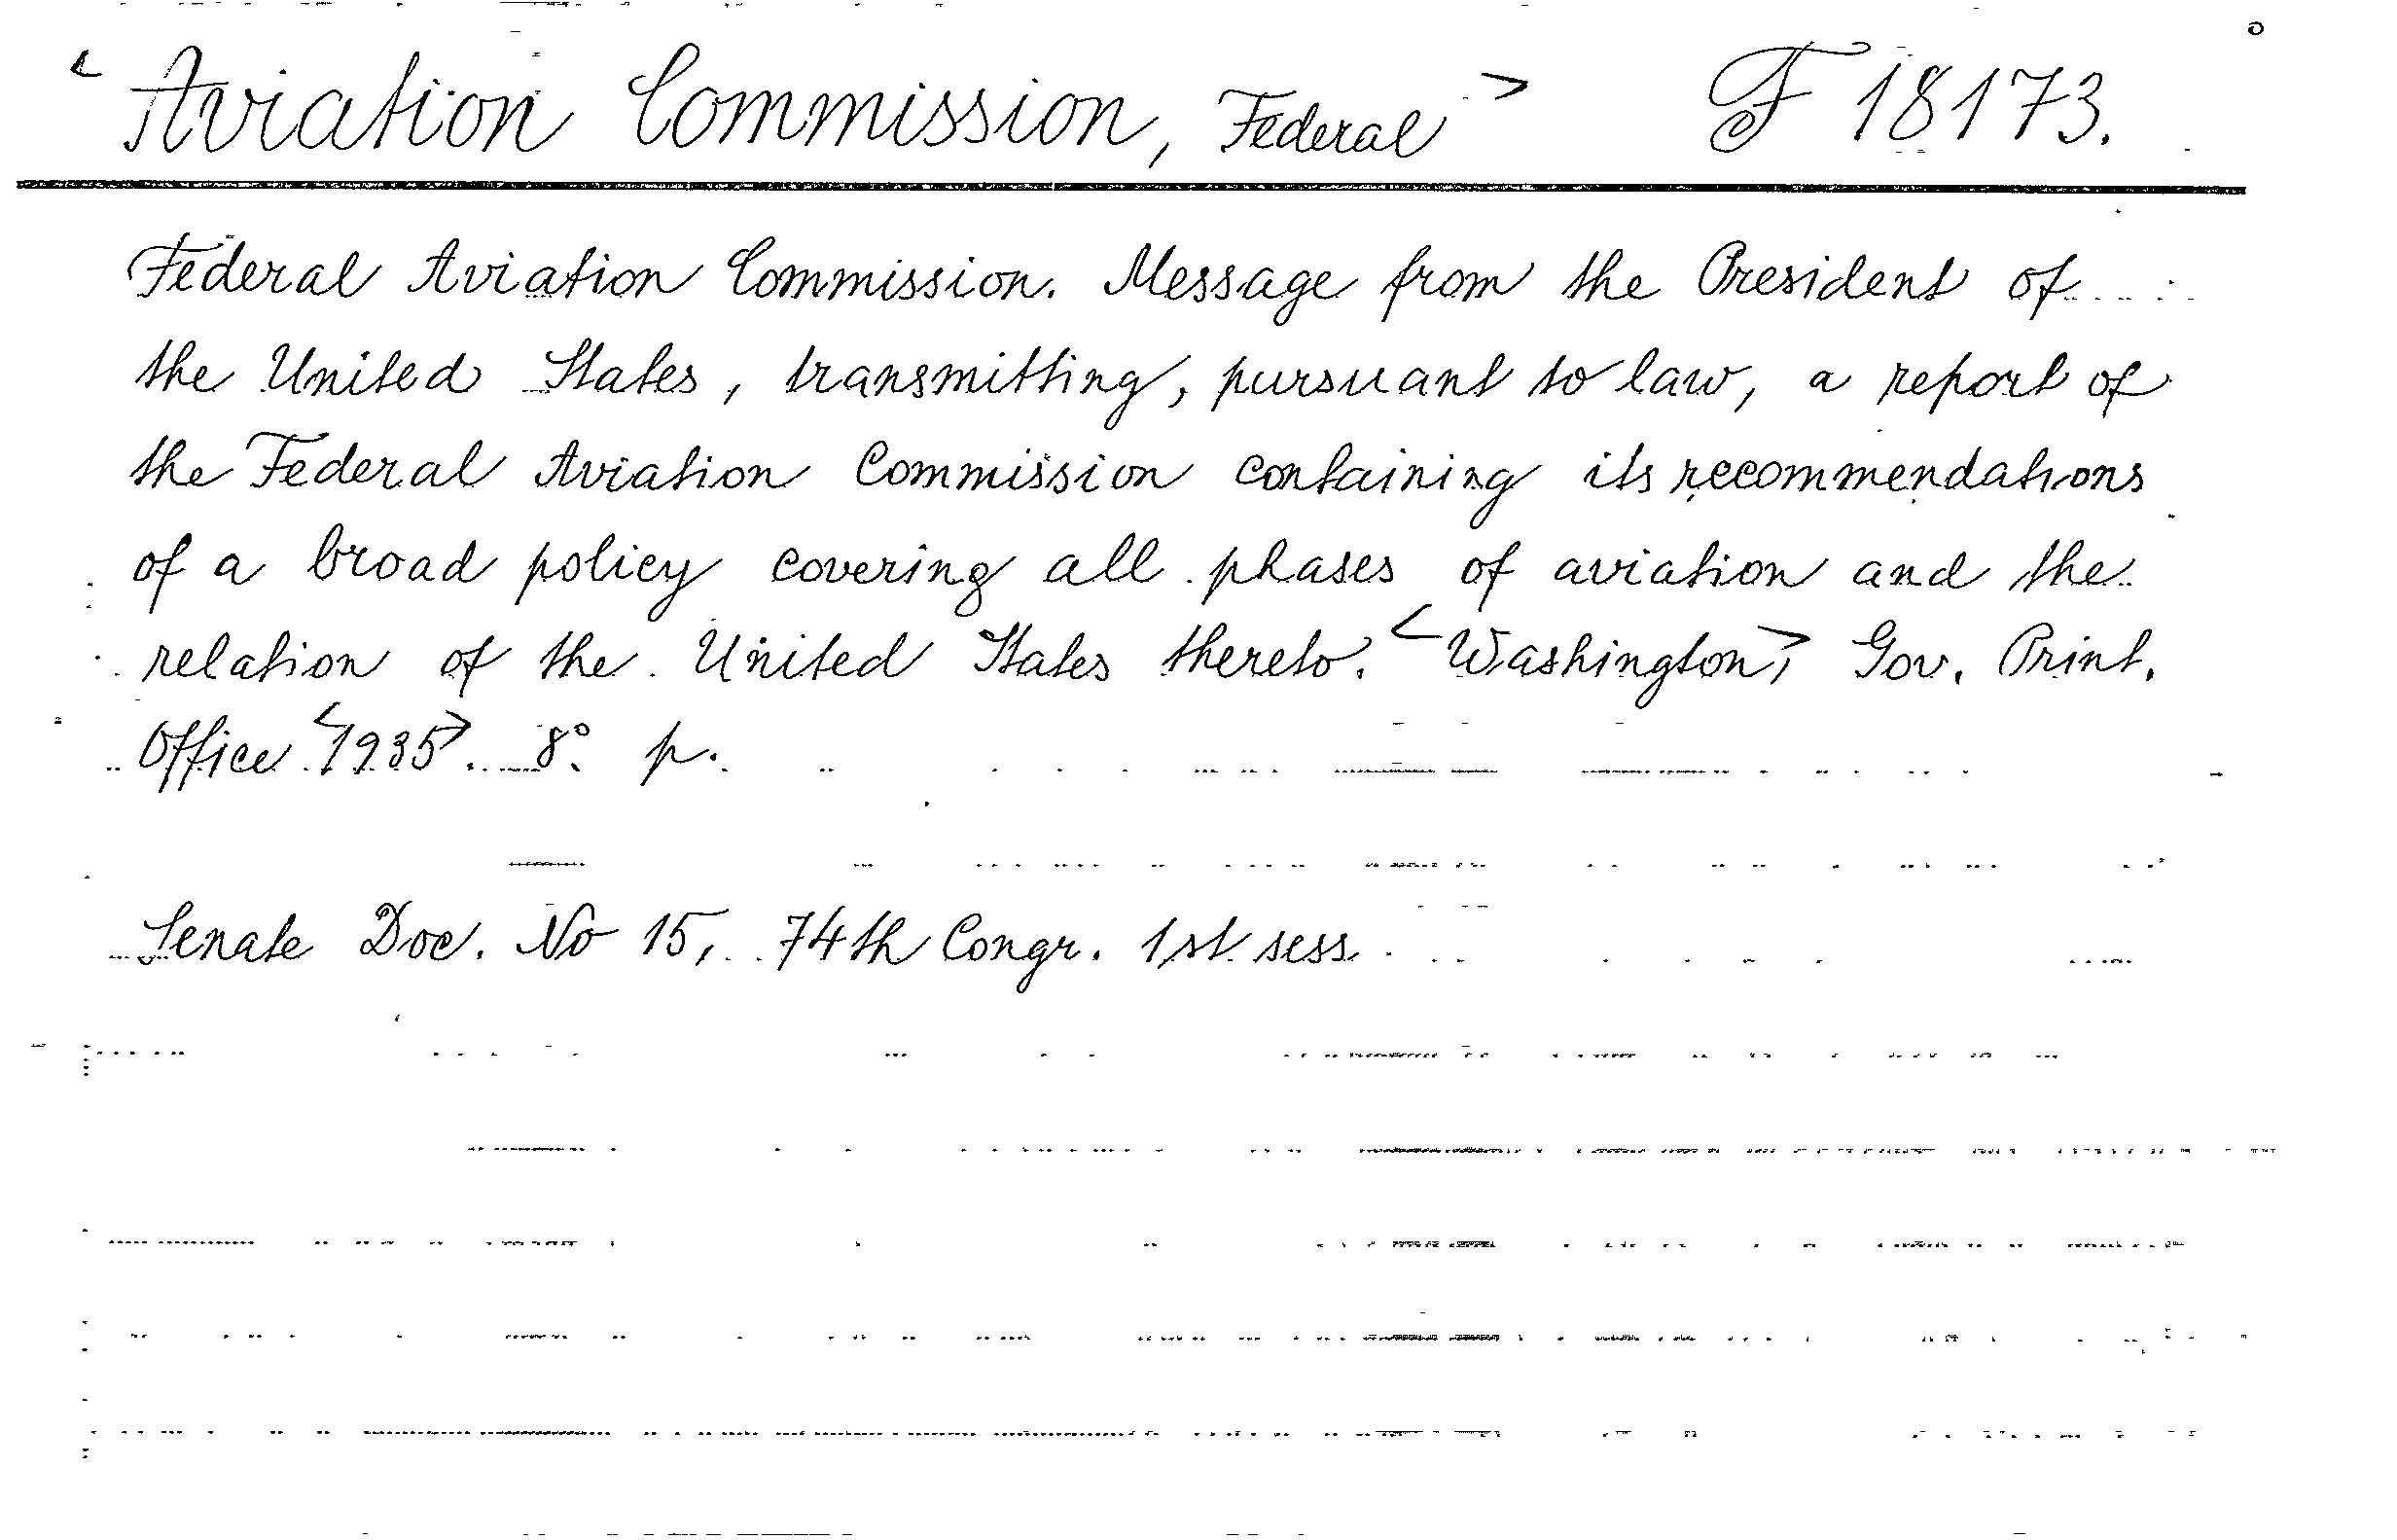 <Aviation Commission, Federal> F 18173.
Federal Aviation Commission. Message from the President of
the United States, transmitting, pursuant to law, a report of
the Federal Aviation Commission containing its recommendations
of a broad policy covering all phases of aviation and the
relation of the United States thereto. <Washington>, Gov. Print.
Office <1935>. 8°. p.
Senate Doc. No 15, 74th Congr. 1st sess.